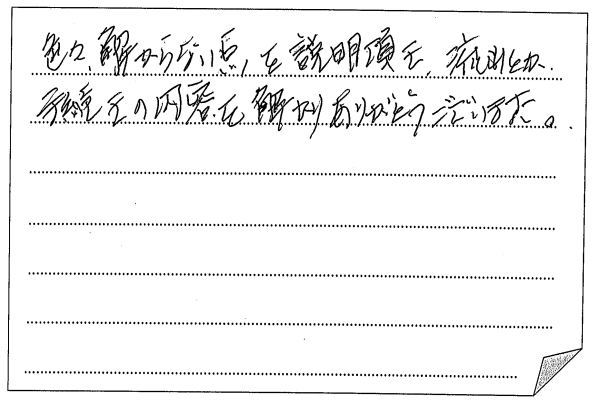 色々、解からない点を説明頂き、流れとか、
手続きの内容も解かりありがとうございました。